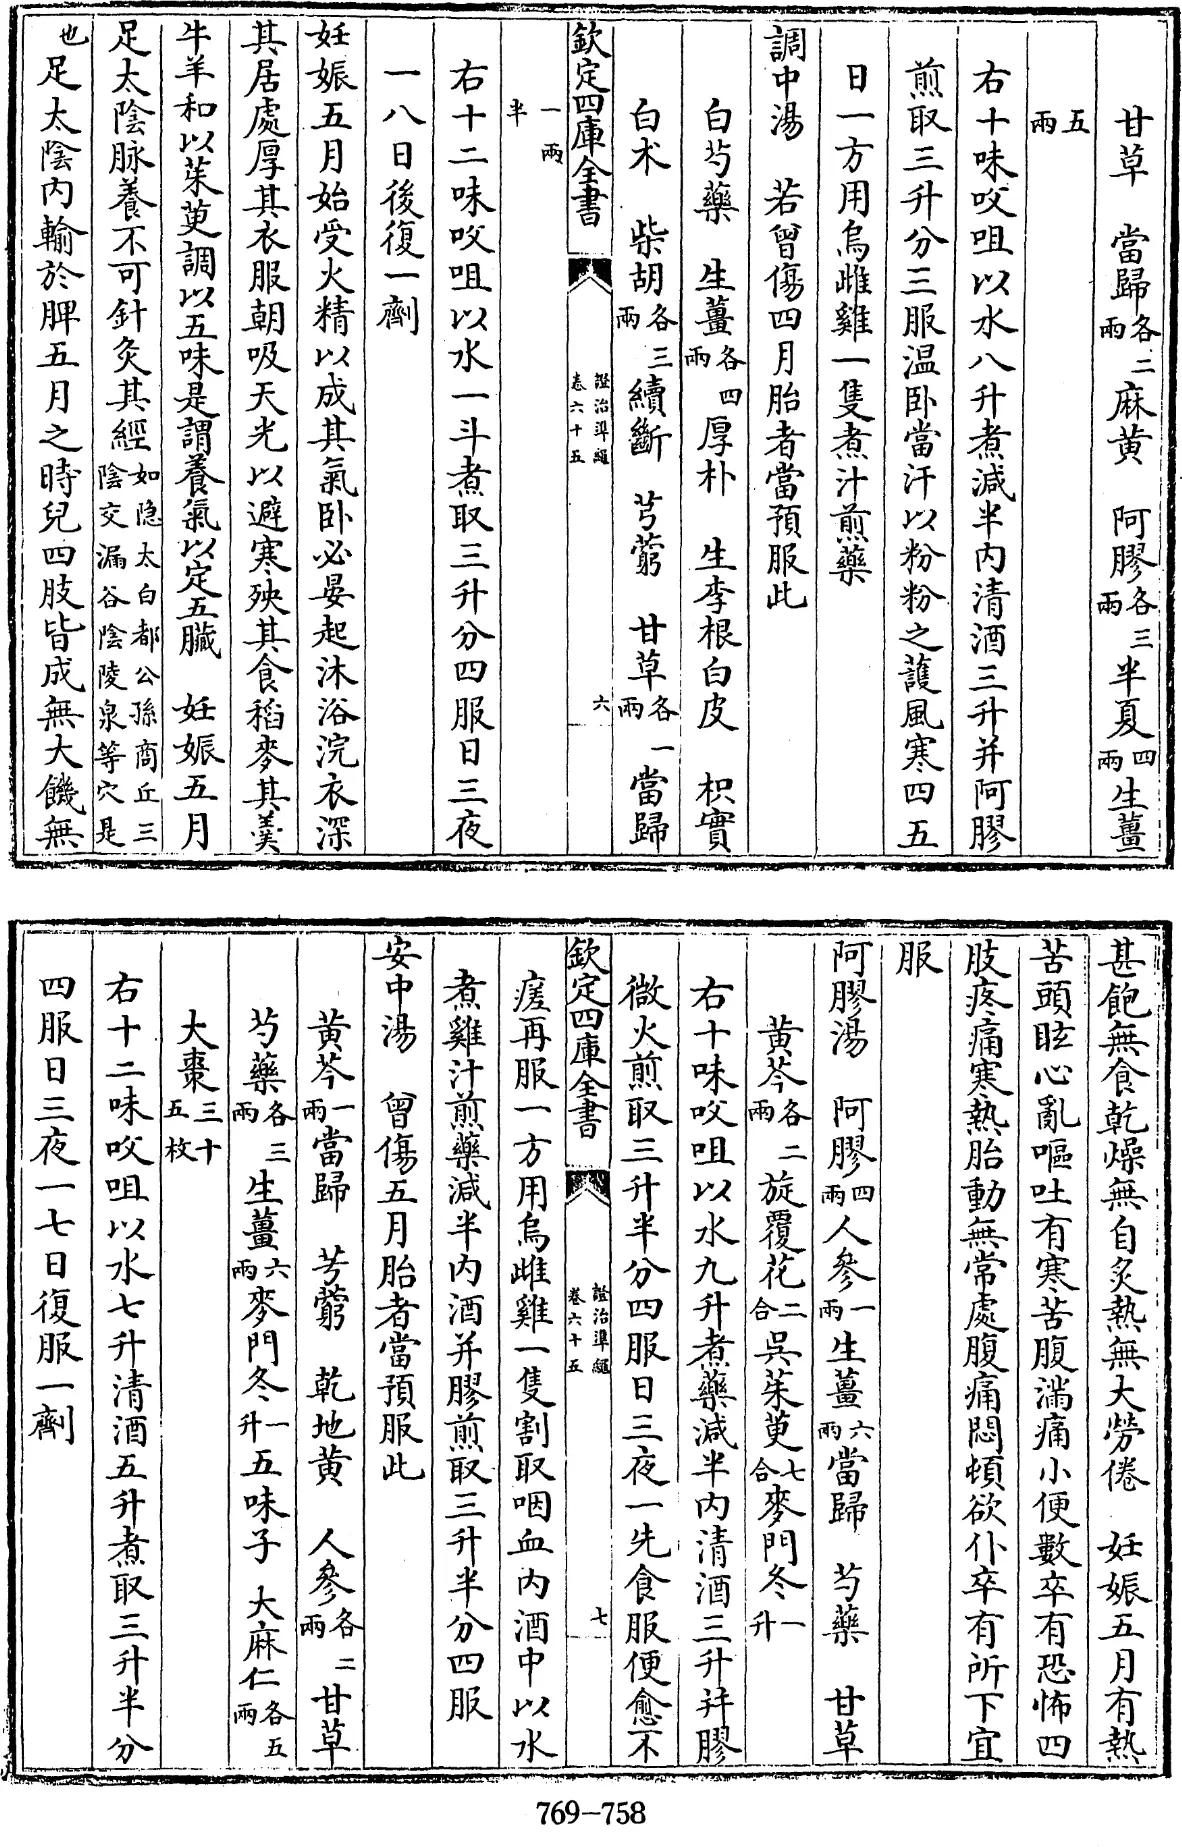 甘草　當歸各二兩麻黄　阿膠各三兩半夏四兩生薑
五兩
右十味㕮咀以水八升煮減半内清酒三升并阿膠
煎取三升分三服温卧當汗以粉粉之䕶風寒四五
日一方用烏雌雞一隻煮汁煎藥
調中湯　若曾傷四月胎者當預服此
白芍藥　生薑各四兩厚朴　生李根白皮　枳實
白术　柴胡各三兩續斷　芎藭　甘草各一兩當歸
欽定四庫全書
證治準繩
卷六十五
六
一兩半
右十二味㕮咀以水一斗煮取三升分四服日三夜
一八日後復一劑
妊娠五月始受火精以成其氣卧必晏起沐浴浣衣深
其居處厚其衣服朝吸天光以避寒殃其食稻麥其羮
牛羊和以茱萸調以五味是謂養氣以定五臟　妊娠五月
足太陰脉養不可針灸其經如隐太白都公孫商丘三陰交漏谷陰陵泉等穴是
也足太陰内輸於脾五月之時兒四肢皆成無大饑無
甚飽無食乾燥無自炙熱無大勞倦　妊娠五月有熱
苦頭眩心亂嘔吐有寒苦腹滿痛小便數卒有恐怖四
肢疼痛寒熱胎動無常處腹痛悶頓欲仆卒有所下宜
服
阿膠湯　阿膠四兩人參一兩生薑六兩當歸　芍藥　甘草
黄芩各二兩旋覆花二合吳茱萸七合麥門冬一升
右十味㕮咀以水九升煮藥減半内清酒三升并膠
微火煎取三升半分四服日三夜一先食服便愈不
欽定四庫全書
證治準繩
卷六十五
七
瘥再服一方用烏雌雞一隻割取咽血内酒中以水
煮雞汁煎藥減半内酒并膠煎取三升半分四服
安中湯　曾傷五月胎者當預服此
黄芩一兩當歸　芎藭　乾地黄　人參各二兩甘草
芍藥各三兩生薑六兩麥門冬一升五味子　大麻仁各五兩
大棗三十五枚
右十二味㕮咀以水七升清酒五升煮取三升半分
四服日三夜一七日復服一劑
769-758